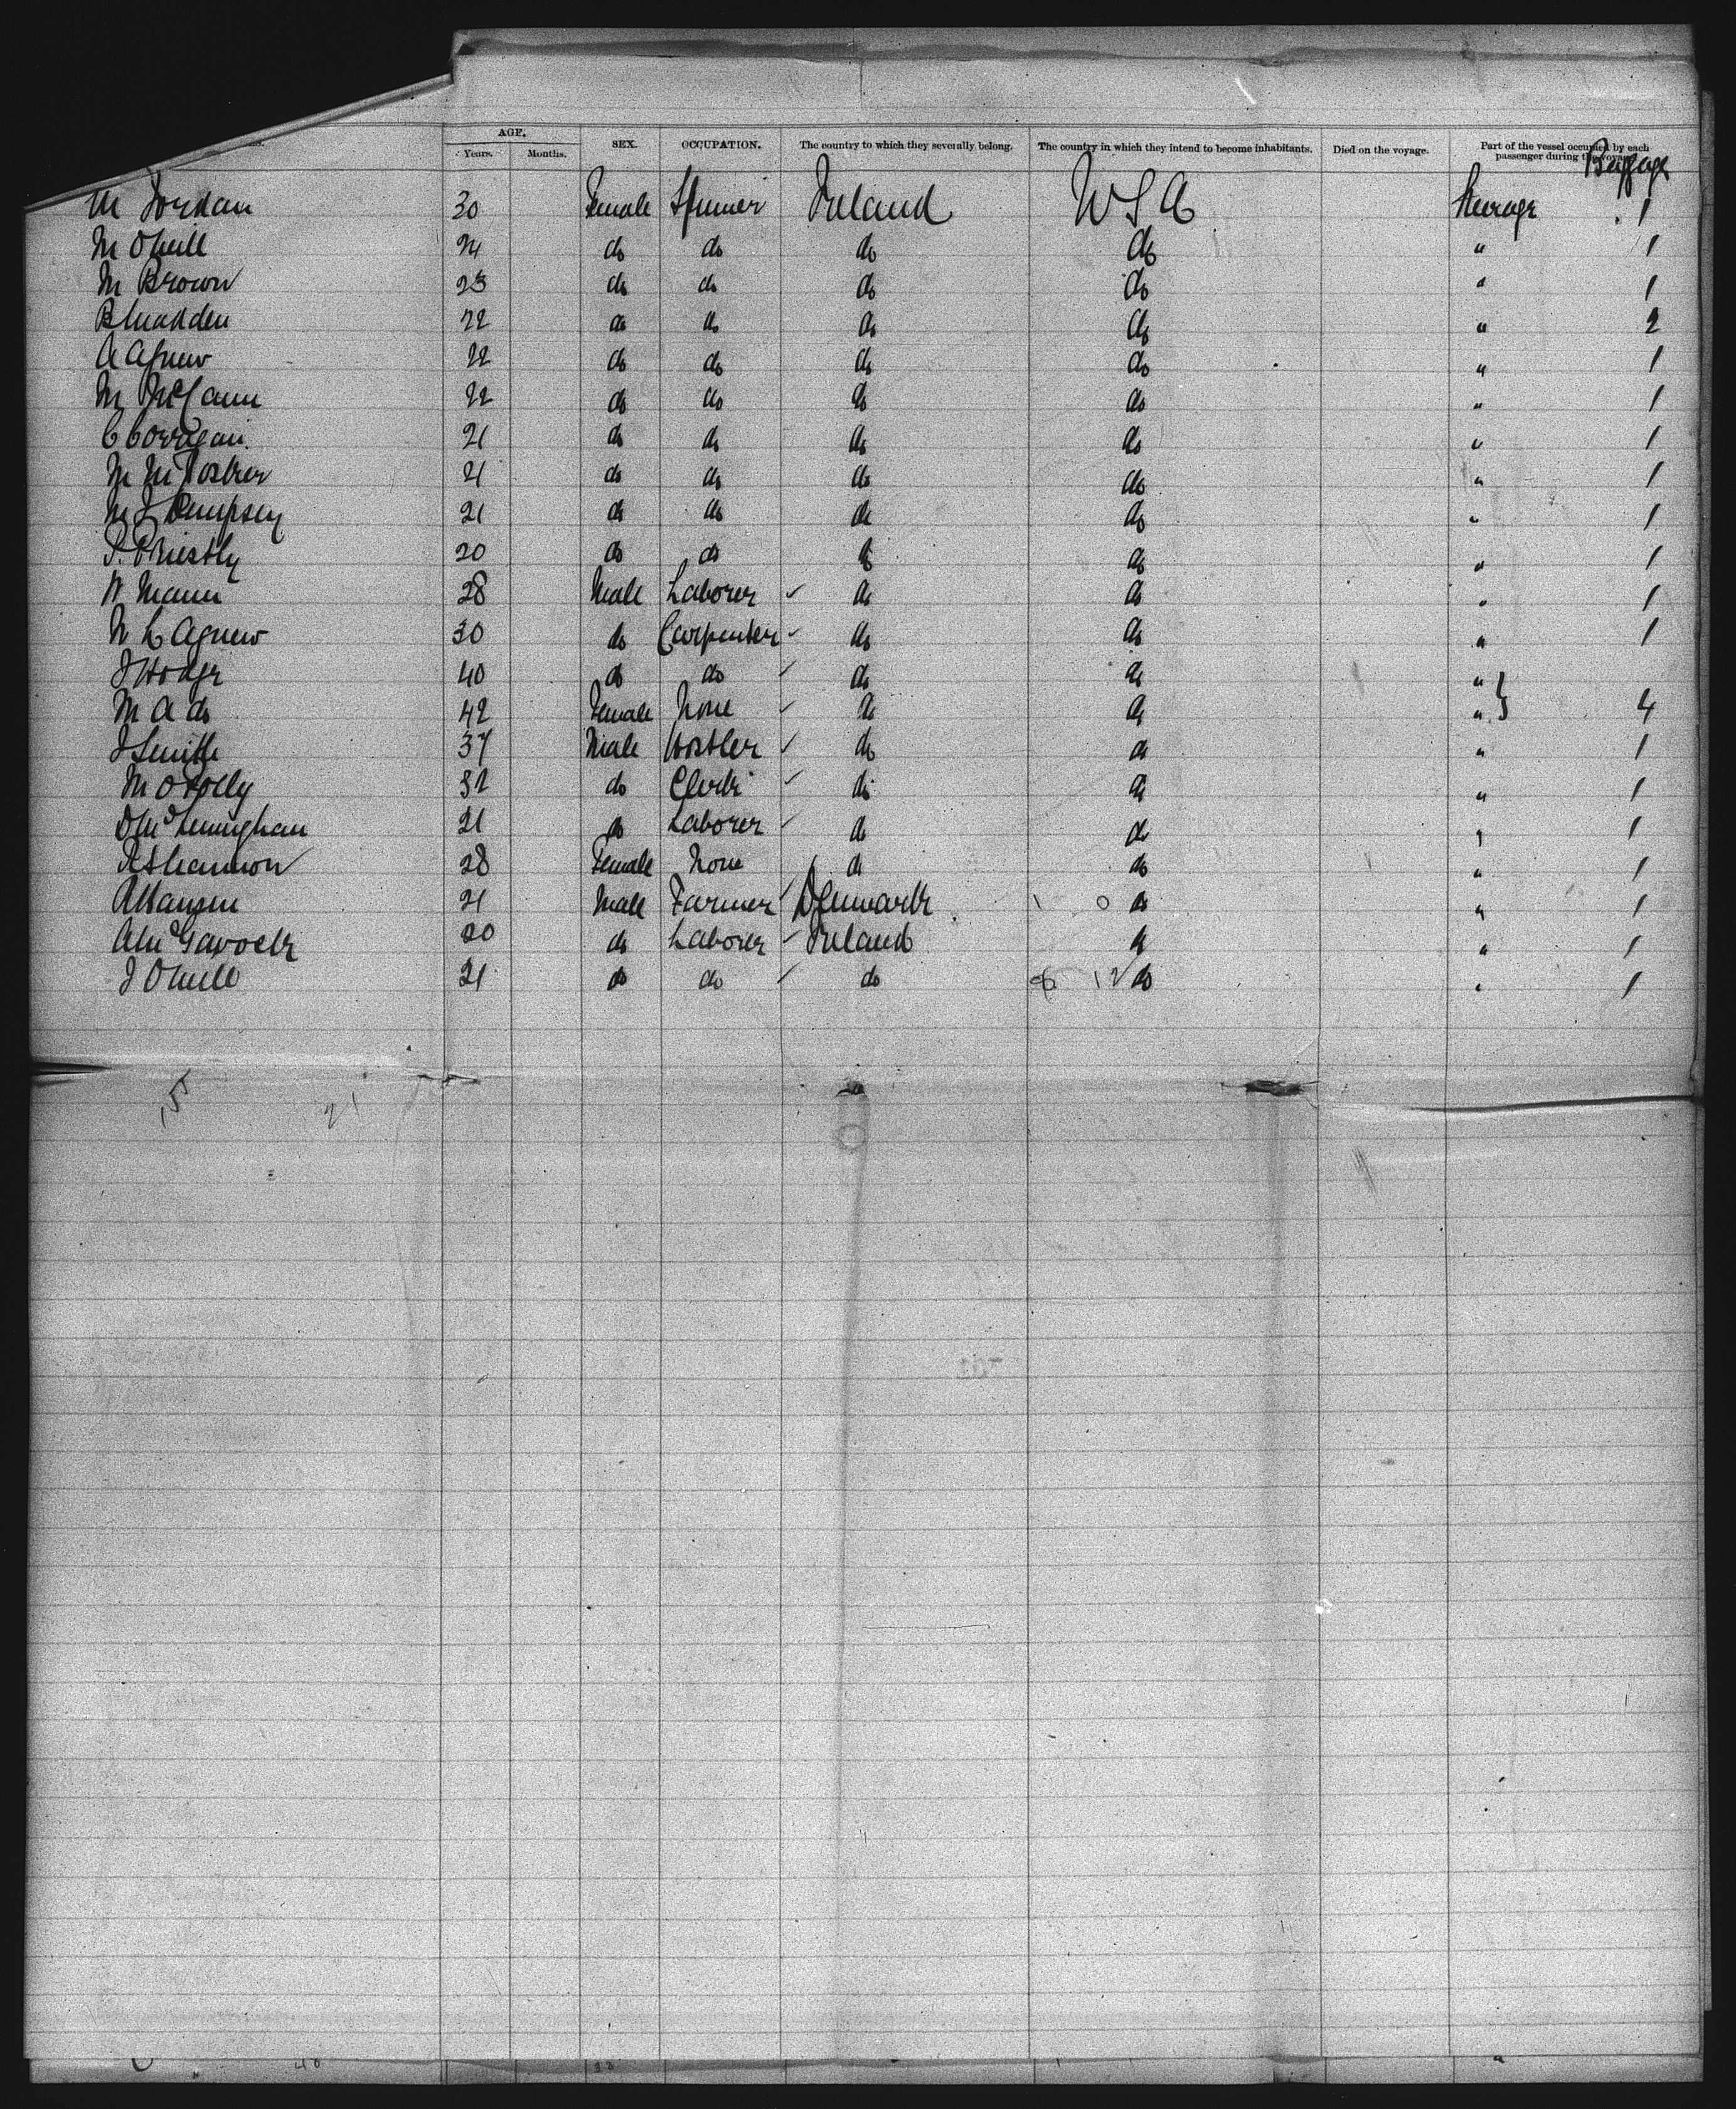 AGE.
Years. Months. SEX. OCCUPATION. The country to which they severally belong. The country in which they intend to become inhabitants. Died on the voyage. Part of the vessel occupied by each passenger during the voyage.
Baggage
M Jordan 30 Female Spinner Ireland U S A Steerage 1
M ONeill 24 do do do do " 1
M Brown 23 do do do do " 1
B Madden 22 do do do do " 2
A Agnew 22 do do do do " 1
M McCann 22 do do do do " 1
C Corrigan 21 do do do do " 1
M 21 do do do do " 1
M J Dempsey 21 do do do do " 1
Priestly 20 do do do do " 1
W Mann 28 Male Laborer do do " 1
N L Agnew 30 do Carpenter do do " 1
J Hodge 40 do do do do "
M A do 42 Female None do do " 4
J Smith 37 Male Hostler do do " 1
M 32 do Clerk do do " 1
21 do Laborer do do " 1
R Shannon 28 Female None do do " 1
A Hansen 21 Male Farmer Denmark do " 1
20 do Laborer Ireland do " 1
J ONeill 21 do do do do " 1
155 21